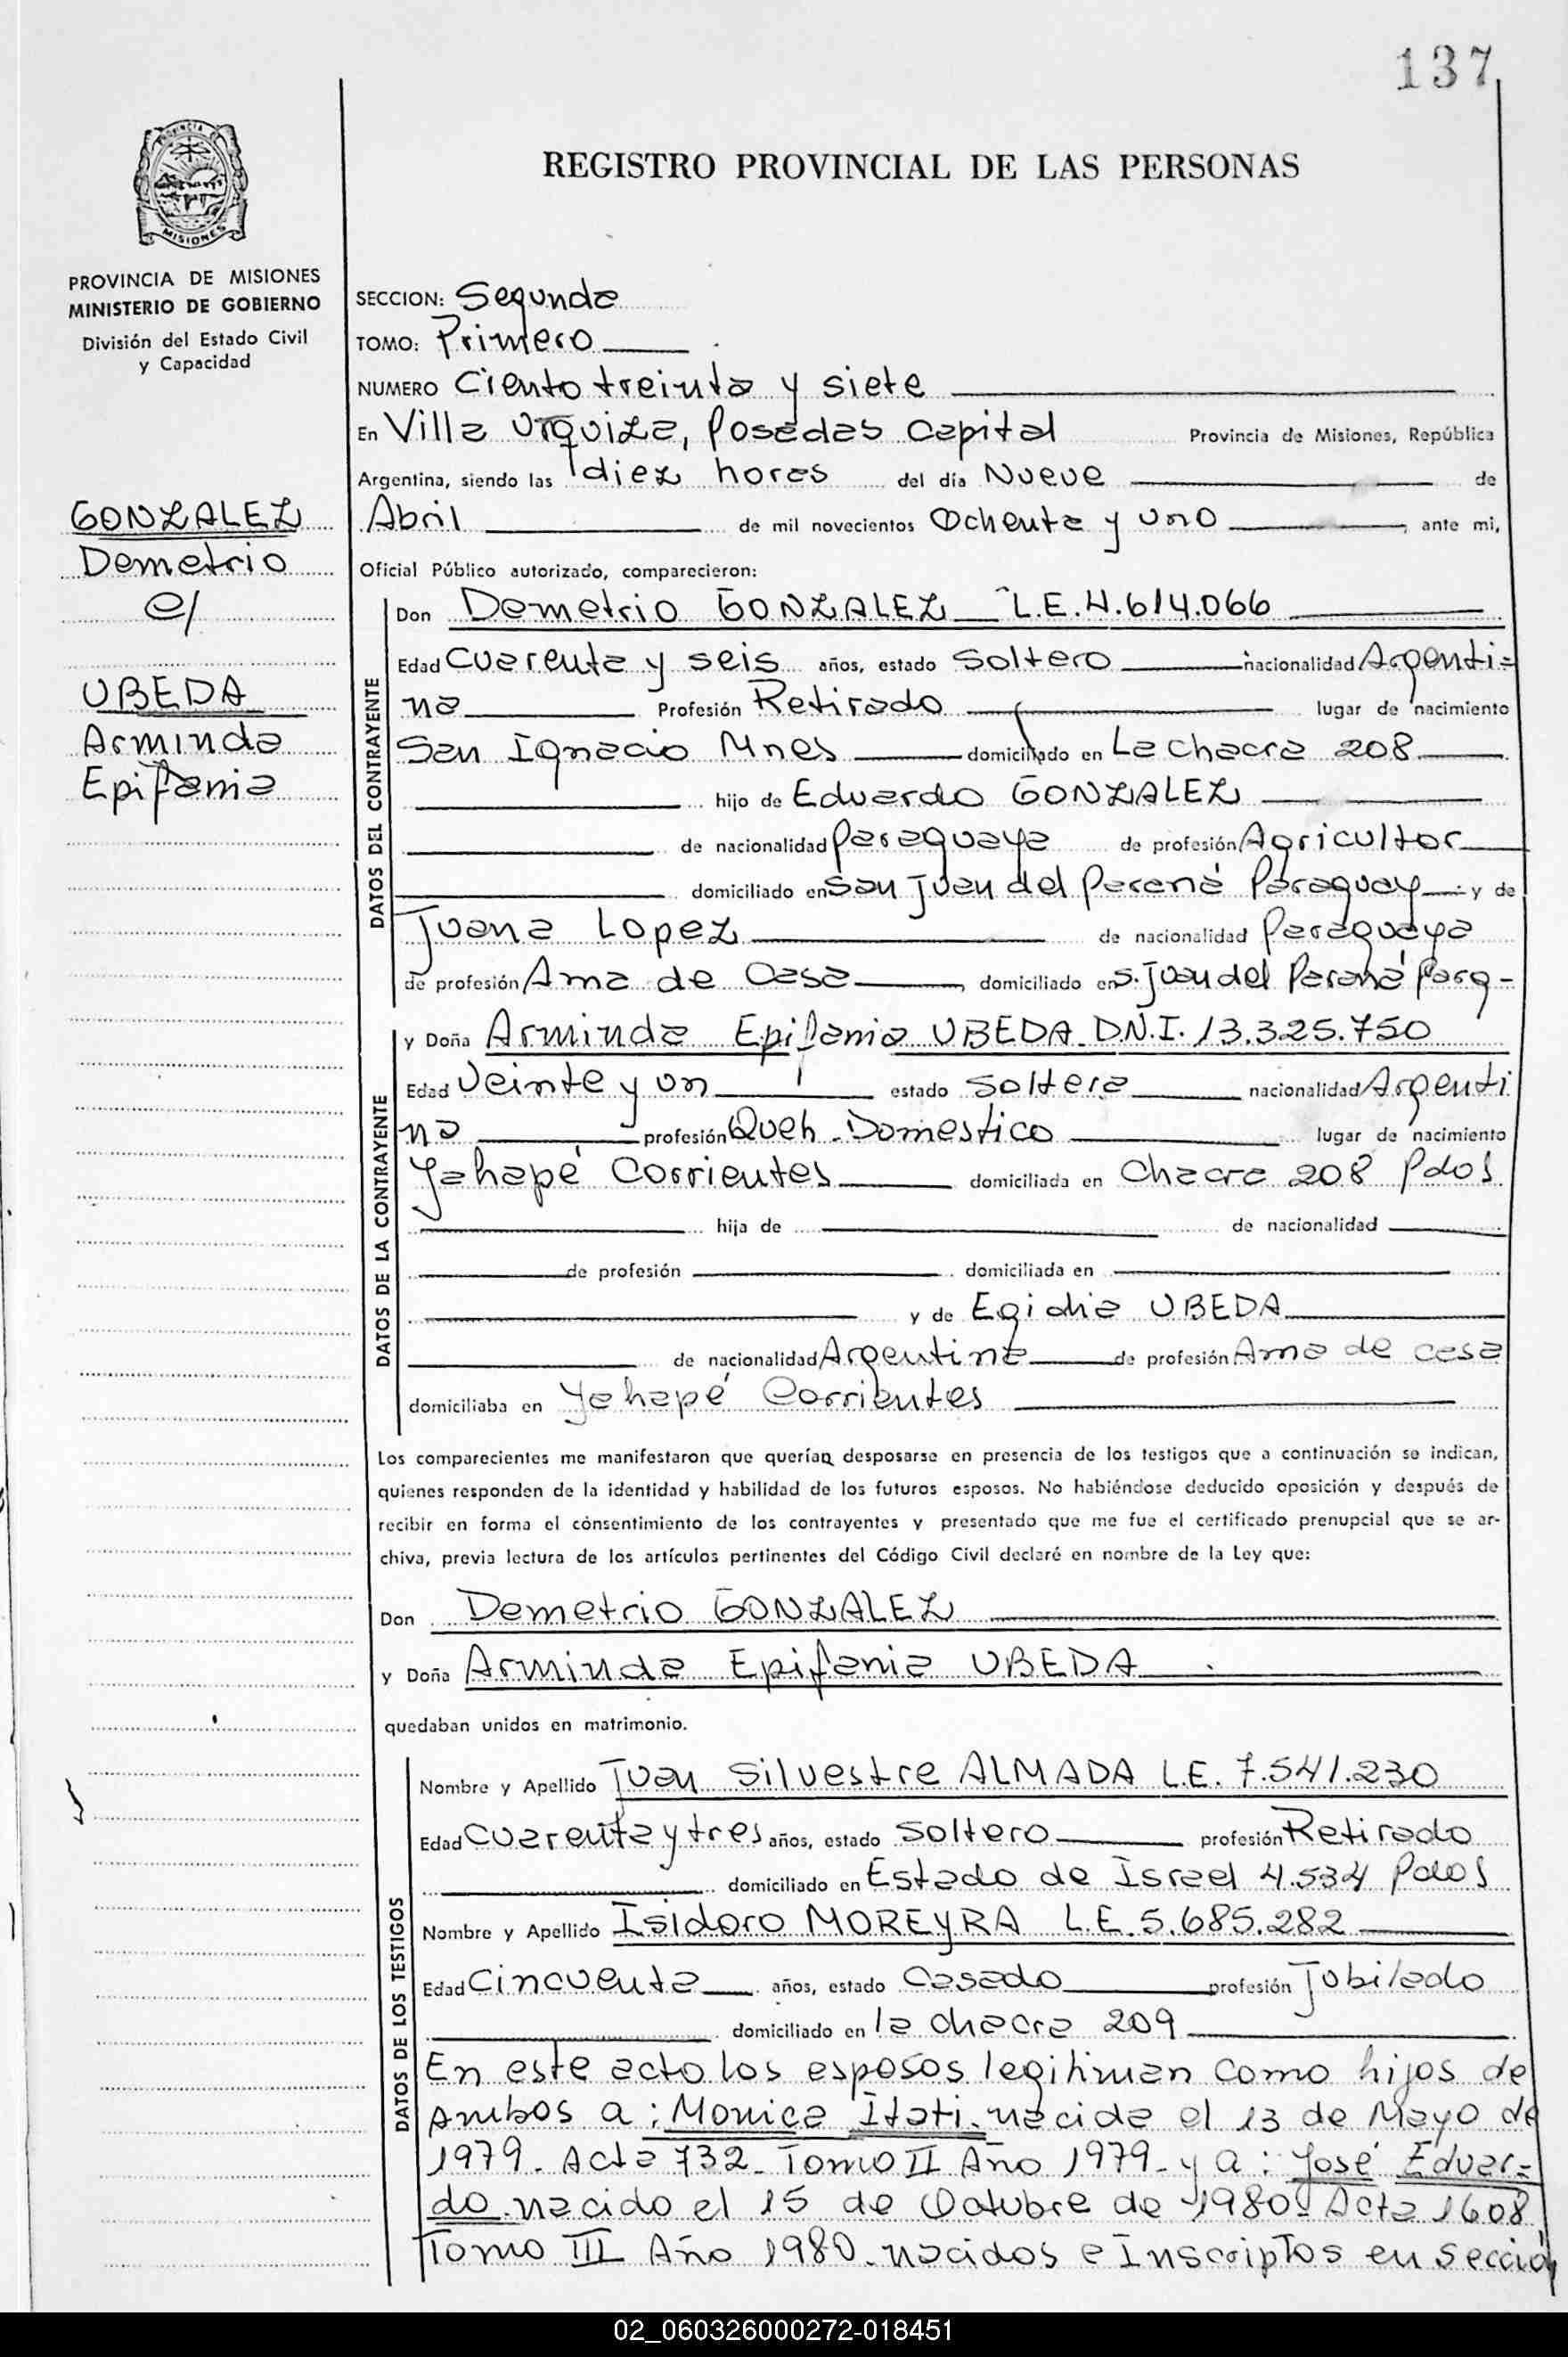 137
REGISTRO PROVINCIAL DE LAS PERSONAS
PROVINCIA DE MISIONES
MINISTERIO DE GOBIERNO
División del Estado Civil
y Capacidad
GONZALEZ
Demetrio
c/
UBEDA
Arminda
Epifania
SECCION: Segunda
TOMO: Primero
NUMERO Ciento treinta y siete
En Villa Urquiza, Posadas Capital Provincia de Misiones, República
Argentina, siendo las diez horas del día Nueve de
Abril de mil novecientos Ochenta y uno, ante mi,
Oficial Público autorizado, comparecieron:
DATOS DEL CONTRAYENTE
Don Demetrio GONZALEZ L.E.4.614.066
Edad Cuarenta y seis años, estado Soltero nacionalidad Argenti=
na Profesión Retirado lugar de nacimiento
San Ignacio Mnes domiciliado en La chacra 208
hijo de Eduardo GONZALEZ
de nacionalidad Paraguaya de profesión Agricultor
domiciliado en San Juan del Paraná Paraguay y de
Juana Lopez de nacionalidad Paraguaya
de profesión Ama de Casa, domiciliado en S. Juan del Paraná Parg-
DATOS DE LA CONTRAYENTE
y Doña Arminda Epifania UBEDA D.N.I. 13.325.750
Edad Veinte y un estado Soltera nacionalidad Argenti
na profesión Queh. Domestico lugar de nacimiento
Yahapé Corrientes domiciliada en Chacra 208 Pdas
hija de de nacionalidad
de profesión domiciliada en
y de Egidia UBEDA
de nacionalidad Argentina de profesión Ama de casa
domiciliaba en Yahapé Corrientes
Los comparecientes me manifestaron que querían desposarse en presencia de los testigos que a continuación se indican,
quienes responden de la identidad y habilidad de los futuros esposos. No habiéndose deducido oposición y después de
recibir en forma el consentimiento de los contrayentes y presentado que me fue el certificado prenupcial que se ar-
chiva, previa lectura de los artículos pertinentes del Código Civil declaré en nombre de la Ley que:
Don Demetrio GONZALEZ
y Doña Arminda Epifania UBEDA
quedaban unidos en matrimonio.
DATOS DE LOS TESTIGOS
Nombre y Apellido Juan Silvestre ALMADA L.E. 7.541.230
Edad Cuarenta y tres años, estado Soltero profesión Retirado
domiciliado en Estado de Israel 4.534 Pdas
Nombre y Apellido Isidoro MOREYRA L.E. 5.685.282
Edad Cincuenta años, estado Casado profesión Jubilado
domiciliado en la chacra 209
En este acto los esposos legitiman como hijos de
Ambos a: Monica Itati. nacida el 13 de Mayo de
1979. Acta 732. Tomo II Año 1979. y a: José Eduar=
do. nacido el 15 de Octubre de 1980. Acta 1608
Tomo III Año 1980. nacidos e Inscriptos en Sección
02_060326000272-018451